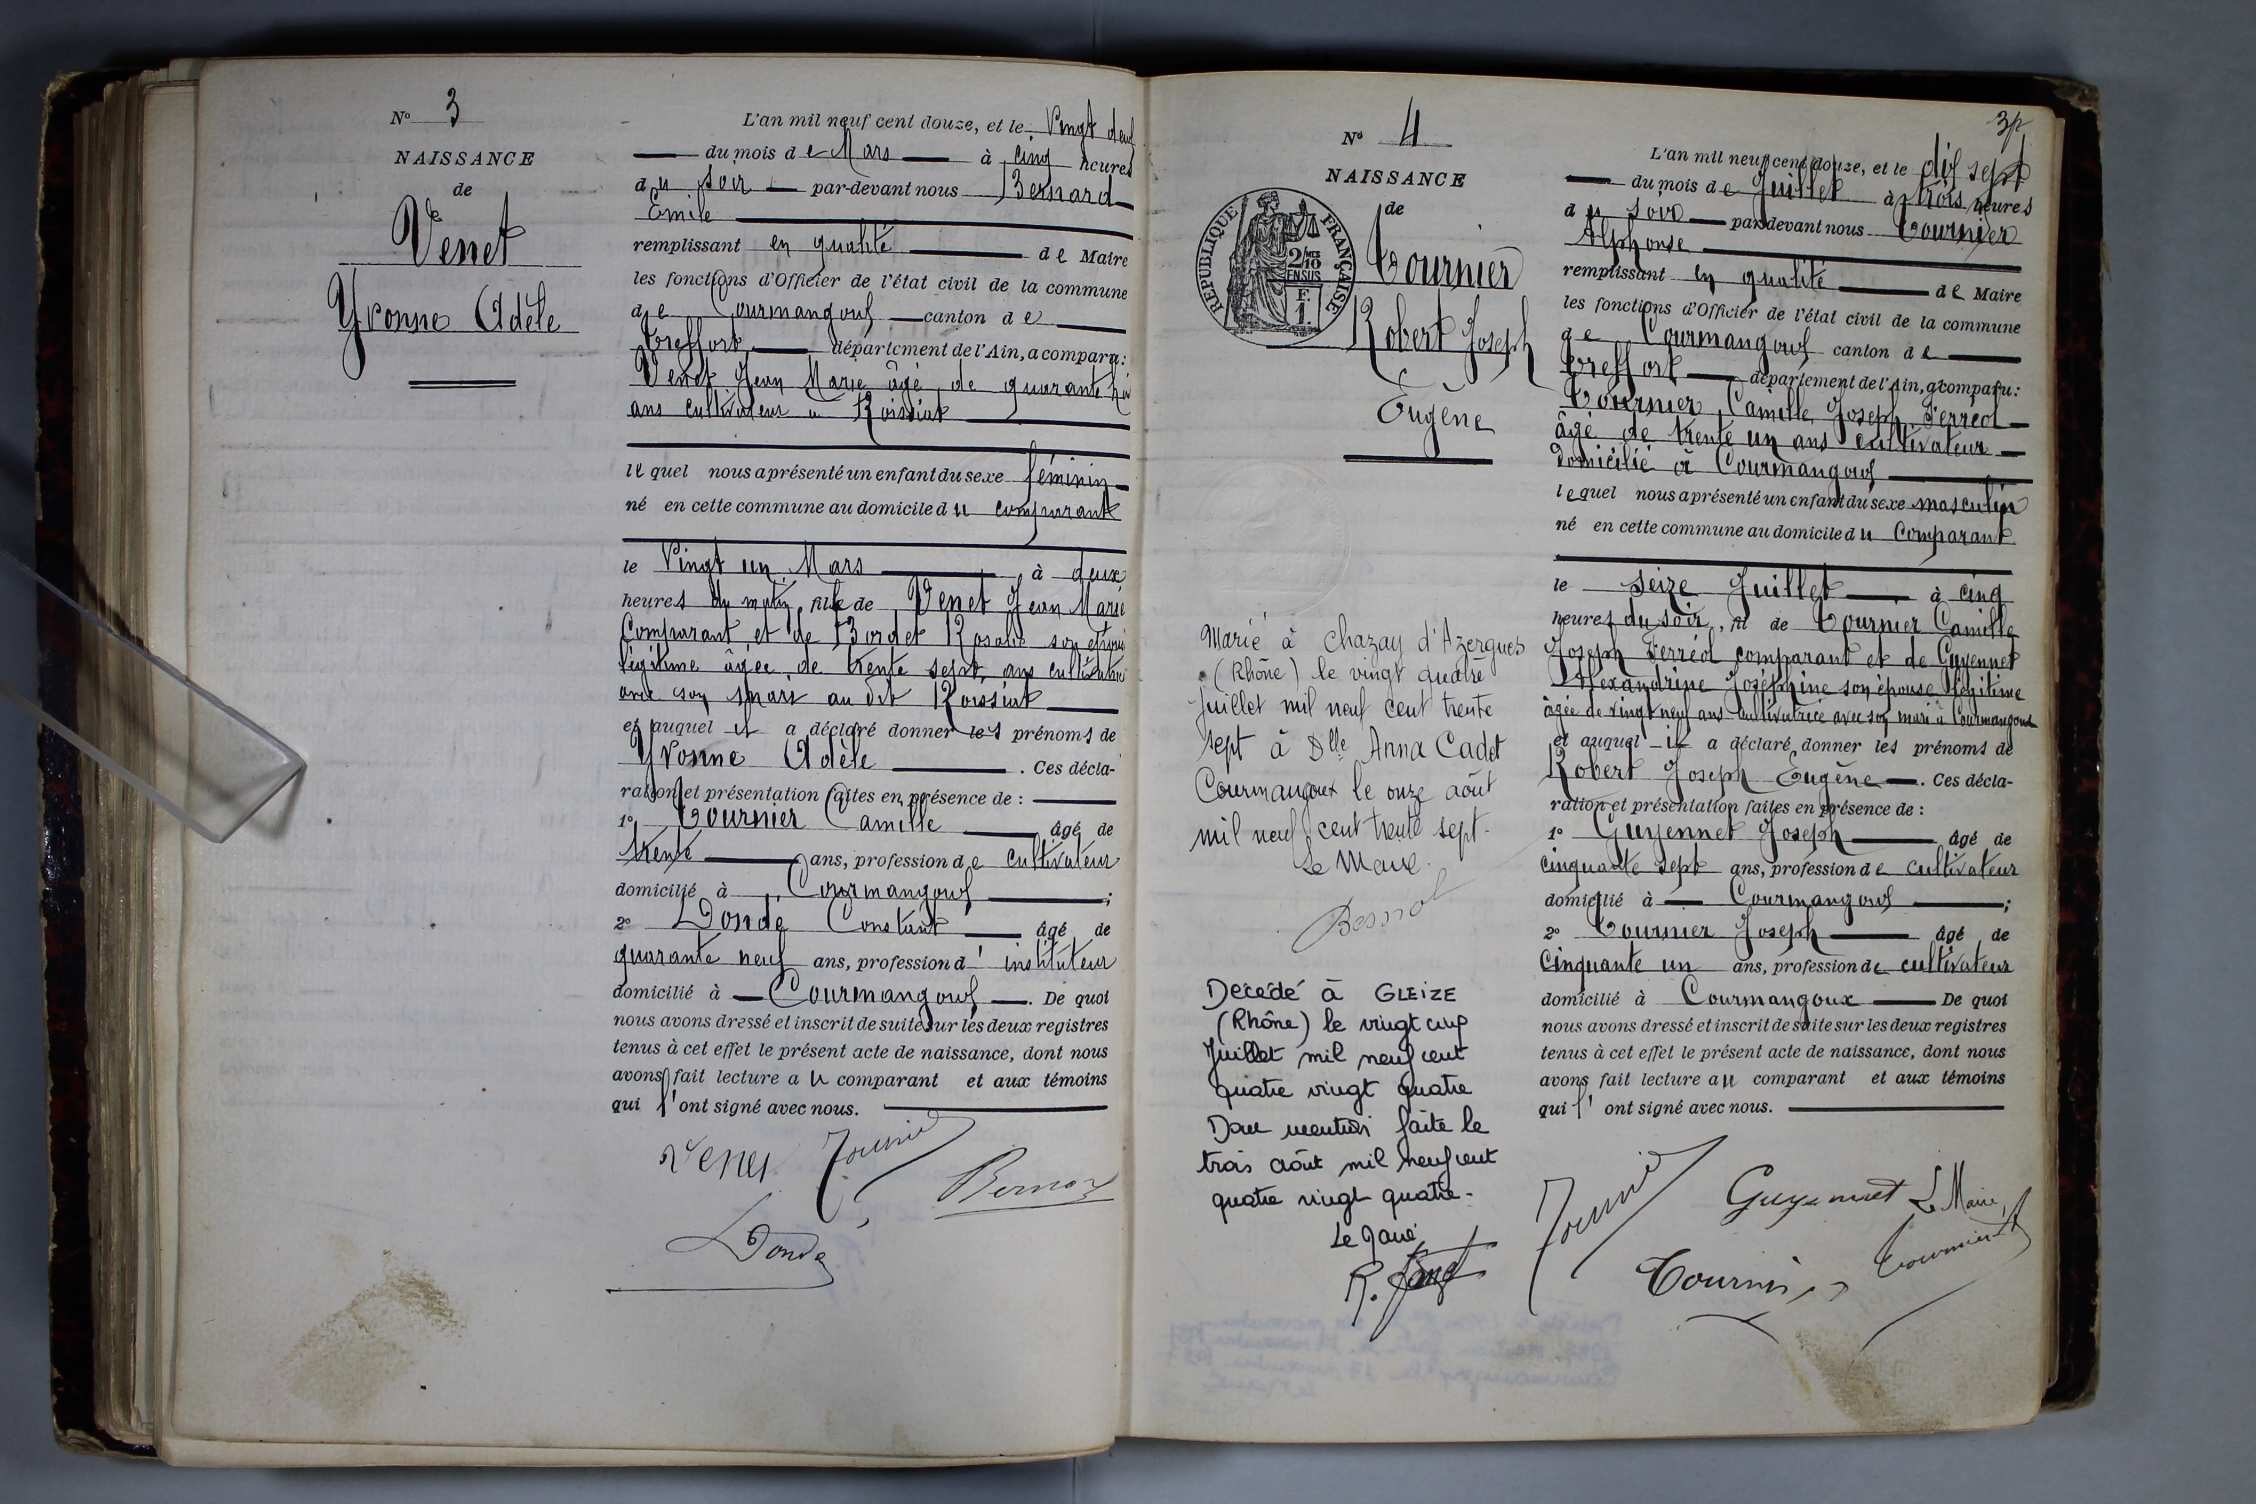 N° 3
NAISSANCE
de
Venet
Yvonne Adèle
L'an mil neuf cent douze, et le Vingt deux
du mois de Mars à cinq heures
du soir par-devant nous Bernard
Emile
remplissant en qualité de Maire
les fonctions d'Officier de l'état civil de la commune
de Courmangoux canton de
Treffort département de l'Ain, a comparu:
Venet Jean Marie âgé de quarante
ans cultivateur à Roissiat
lequel nous a présenté un enfant du sexe féminin
né en cette commune au domicile du comparant
le Vingt un Mars à deux
heures du matin, fille de Venet Jean Marie
Comparant et de Bordet Rosalie son épouse
légitime âgée de trente sept ans cultivatrice
avec son mari au dit Roissiat
et auquel il a déclaré donner les prénoms de
Yvonne Adèle. Ces décla-
ration et présentation faites en présence de:
1° Tournier Camille âgé de
trente ans, profession de cultivateur
domicilié à Courmangoux;
2° Donde Constant âgé de
quarante neuf ans, profession d'instituteur
domicilié à Courmangoux. De quoi
nous avons dressé et inscrit de suite sur les deux registres
tenus à cet effet le présent acte de naissance, dont nous
avons fait lecture au comparant et aux témoins
qui l'ont signé avec nous.
Venet Tournier
Bernard
Donde
3
N° 4
NAISSANCE
de
RÉPUBLIQUE FRANÇAISE
2/MES
10
EN SUS
F.
1.
Tournier
Robert Joseph
Eugène
Marié à Chazay d'Azergues
(Rhône) le vingt quatre
Juillet mil neuf cent trente
sept à Dlle Anna Cadet
Courmangoux le onze août
mil neuf cent trente sept.
Le Maire.
Décédé à GLEIZE
(Rhône) le vingt cinq
Juillet mil neuf cent
quatre vingt quatre
Dont mention faite le
trois août mil neuf cent
quatre vingt quatre.
Le Maire
L'an mil neuf cent douze, et le dix sept
du mois de Juillet à trois heures
du soir par-devant nous Tournier
Alphonse
remplissant en qualité de Maire
les fonctions d'Officier de l'état civil de la commune
de Courmangoux canton de
Treffort département de l'Ain, a comparu:
Tournier Camille Joseph Ferréol
âgé de trente un ans cultivateur
domicilié à Courmangoux
lequel nous a présenté un enfant du sexe masculin
né en cette commune au domicile du Comparant
le seize Juillet à cinq
heures du soir, fil de Tournier Camille
Joseph Ferréol comparant et de Guyennet
Alexandrine Joséphine son épouse légitime
âgée de vingt neuf ans cultivatrice avec son mari à Courmangoux
et auquel il a déclaré donner les prénoms de
Robert Joseph Eugène. Ces décla-
ration et présentation faites en présence de:
1° Guyennet Joseph âgé de
cinquante sept ans, profession de cultivateur
domicilié à Courmangoux;
2° Tournier Joseph âgé de
Cinquante un ans, profession de cultivateur
domicilié à Courmangoux De quoi
nous avons dressé et inscrit de suite sur les deux registres
tenus à cet effet le présent acte de naissance, dont nous
avons fait lecture au comparant et aux témoins
qui l'ont signé avec nous.
Tournier Guyennet Le Maire,
Tournier Tournier